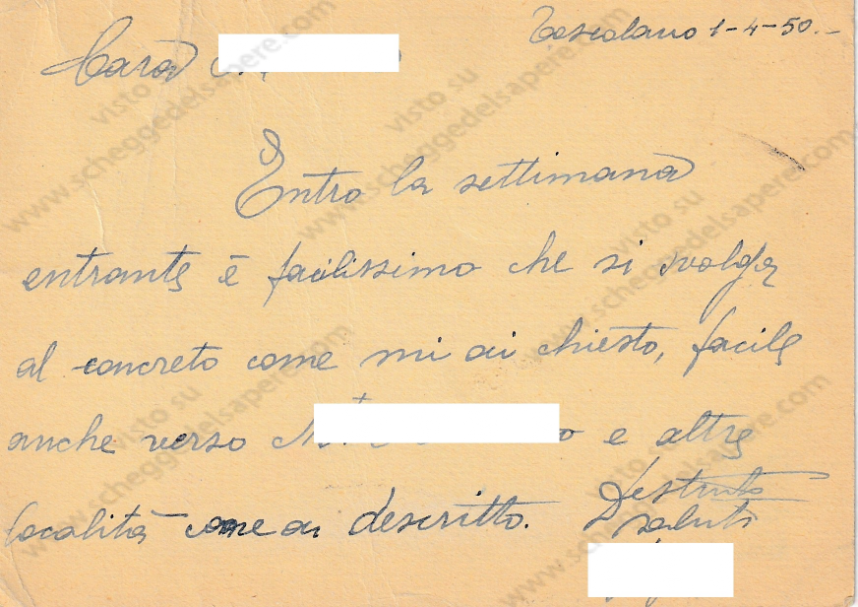 Toscolano 1-4-50.-
Cara
Entro la settimana
entrante è facilissimo che si svolga
al concreto come mi ai chiesto, facile
anche verso e altre
località come ai descritto.
saluti
visto su
www.scheggedelsapere.com